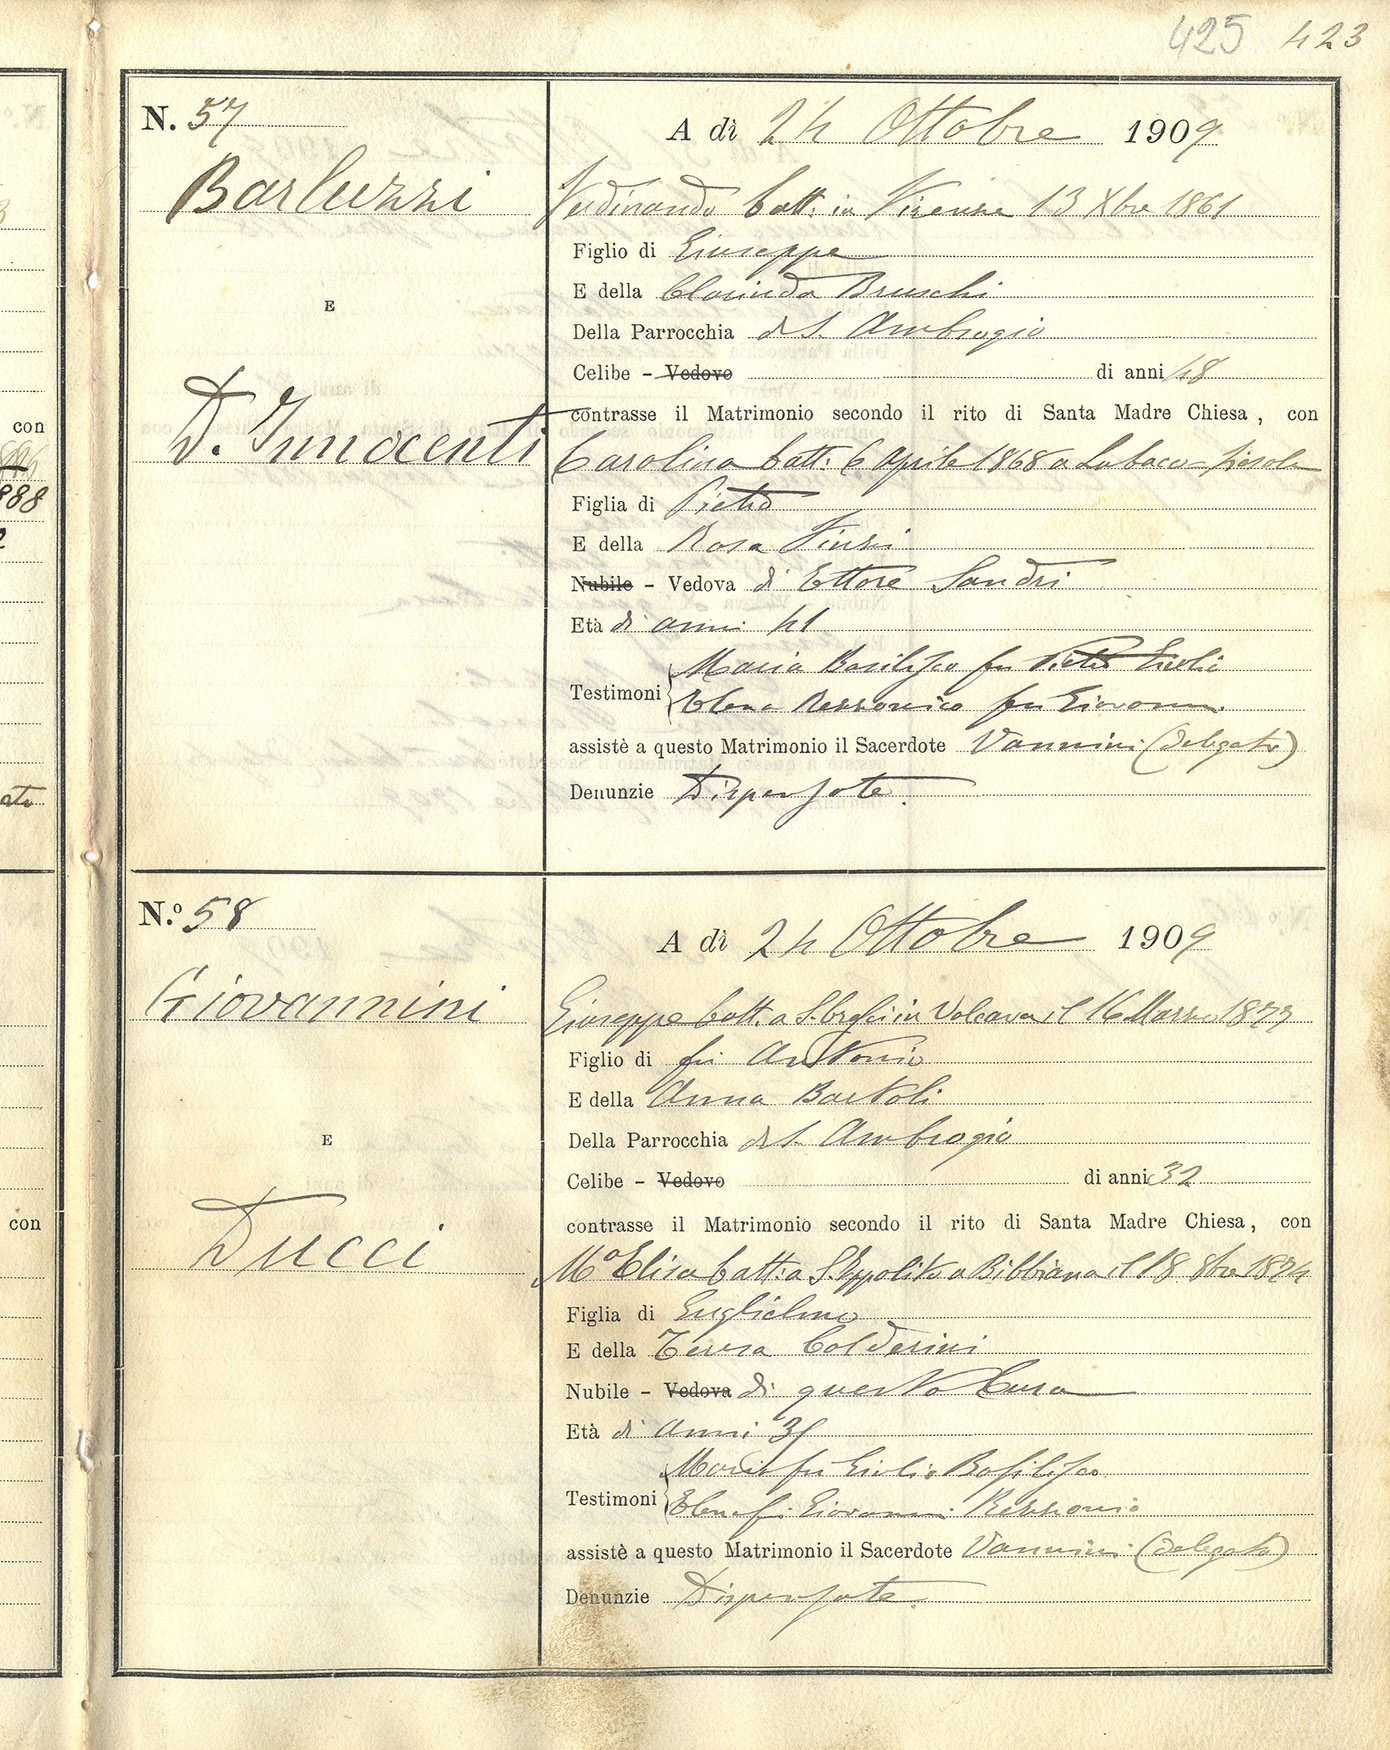 425 423
N. 57
A dì 24 Ottobre 1909
Barluzzi
Ferdinando batt: in Firenze 13 Xbre 1861
Figlio di Giuseppe
E della Clorinda Bruschi
E
Della Parrocchia di S. Ambrogio
Celibe – Vedovo di anni 48
D. Innocenti
contrasse il Matrimonio secondo il rito di Santa Madre Chiesa, con
Carolina batt: 6 Aprile 1868 a Lubaco – Fiesole
Figlia di Pietro
E della Rosa
Nubile – Vedova di Ettore Sandri
Età di anni 41
Testimoni Maria Basilisco fu Pietro Giulio
Elena Rezzonico fu Giovanni
assistè a questo Matrimonio il Sacerdote Vannini (delegato)
Denunzie Dispensate.
N.º 58
A dì 24 Ottobre 1909
Giovannini
Giuseppe batt. a in il 16 Marzo 1877
Figlio di fu Antonio
E della Anna Bartoli
E
Della Parrocchia di S. Ambrogio
Celibe – Vedovo di anni 32
Ducci
contrasse il Matrimonio secondo il rito di Santa Madre Chiesa, con
Mª Elisa batt: a S. Ippolito a Bibbiana il 18 8bre 1874
Figlia di Guglielmo
E della Teresa Calderini
Nubile – Vedova di questa Cura
Età di anni 35
Testimoni Maria fu Giulio Basilisco
Elena fu Giovanni Rezzonico
assistè a questo Matrimonio il Sacerdote Vannini (delegato)
Denunzie Dispensate.
con
888
2
ato
con